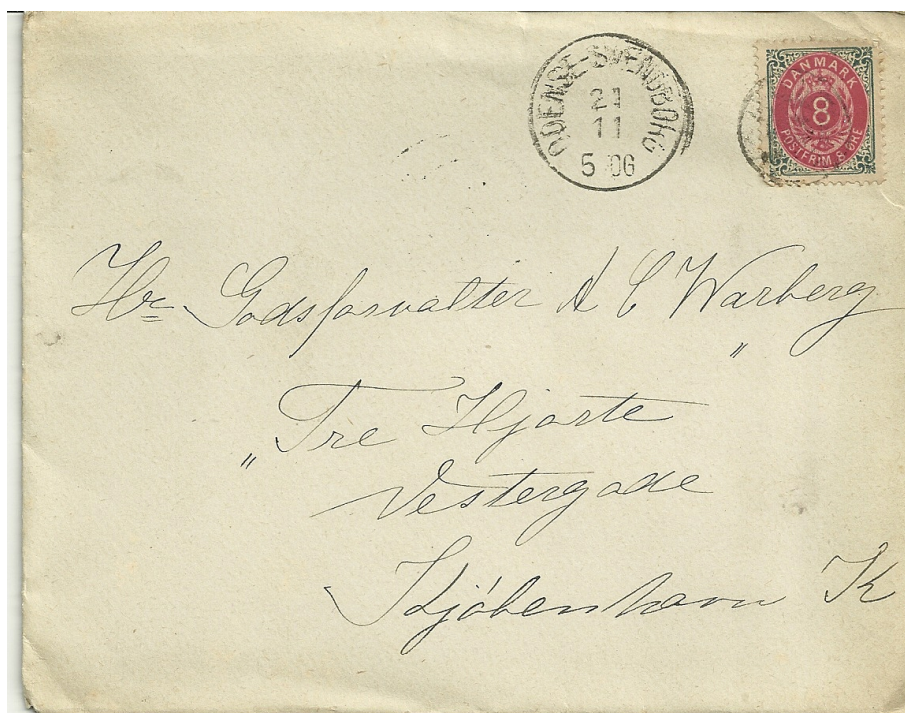 ODENSE-SVENDBORG
21
11
5 06
DANMARK
8
POSTFRIM 8 ØRE
Hr Godsforvalter A C Warberg
„Tre Hjorte"
Vestergade
Kjøbenhavn K